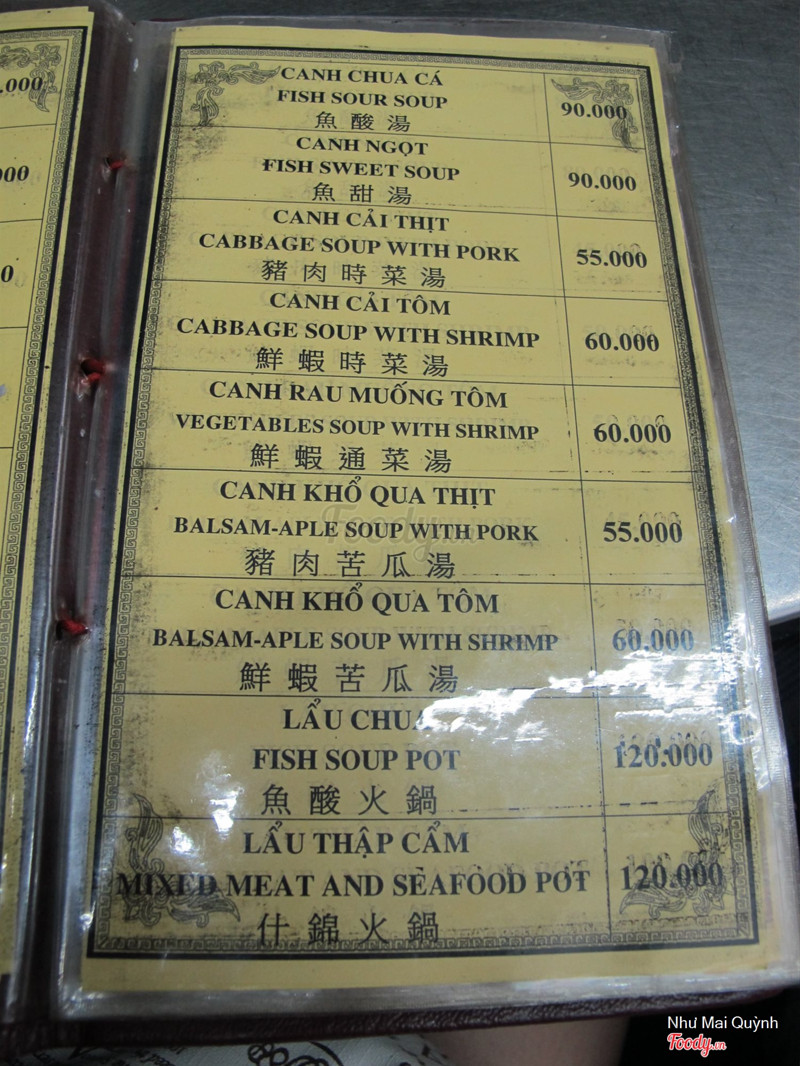 CANH CHUA CÁ
FISH SOUR SOUP
魚酸湯
90.000
CANH NGỌT
FISH SWEET SOUP
魚甜湯
90.000
CANH CẢI THỊT
CABBAGE SOUP WITH PORK
豬肉時菜湯
55.000
CANH CẢI TÔM
CABBAGE SOUP WITH SHRIMP
鮮蝦時菜湯
60.000
CANH RAU MUỐNG TÔM
VEGETABLES SOUP WITH SHRIMP
鮮蝦通菜湯
60.000
CANH KHỔ QUA THỊT
BALSAM-APLE SOUP WITH PORK
豬肉苦瓜湯
55.000
CANH KHỔ QUA TÔM
BALSAM-APLE SOUP WITH SHRIMP
鮮蝦苦瓜湯
60.000
LẨU CHUA
FISH SOUP POT
魚酸火鍋
120.000
LẨU THẬP CẨM
MIXED MEAT AND SEAFOOD POT
什錦火鍋
120.000
Foody.vn
Như Mai Quỳnh
Foody.vn